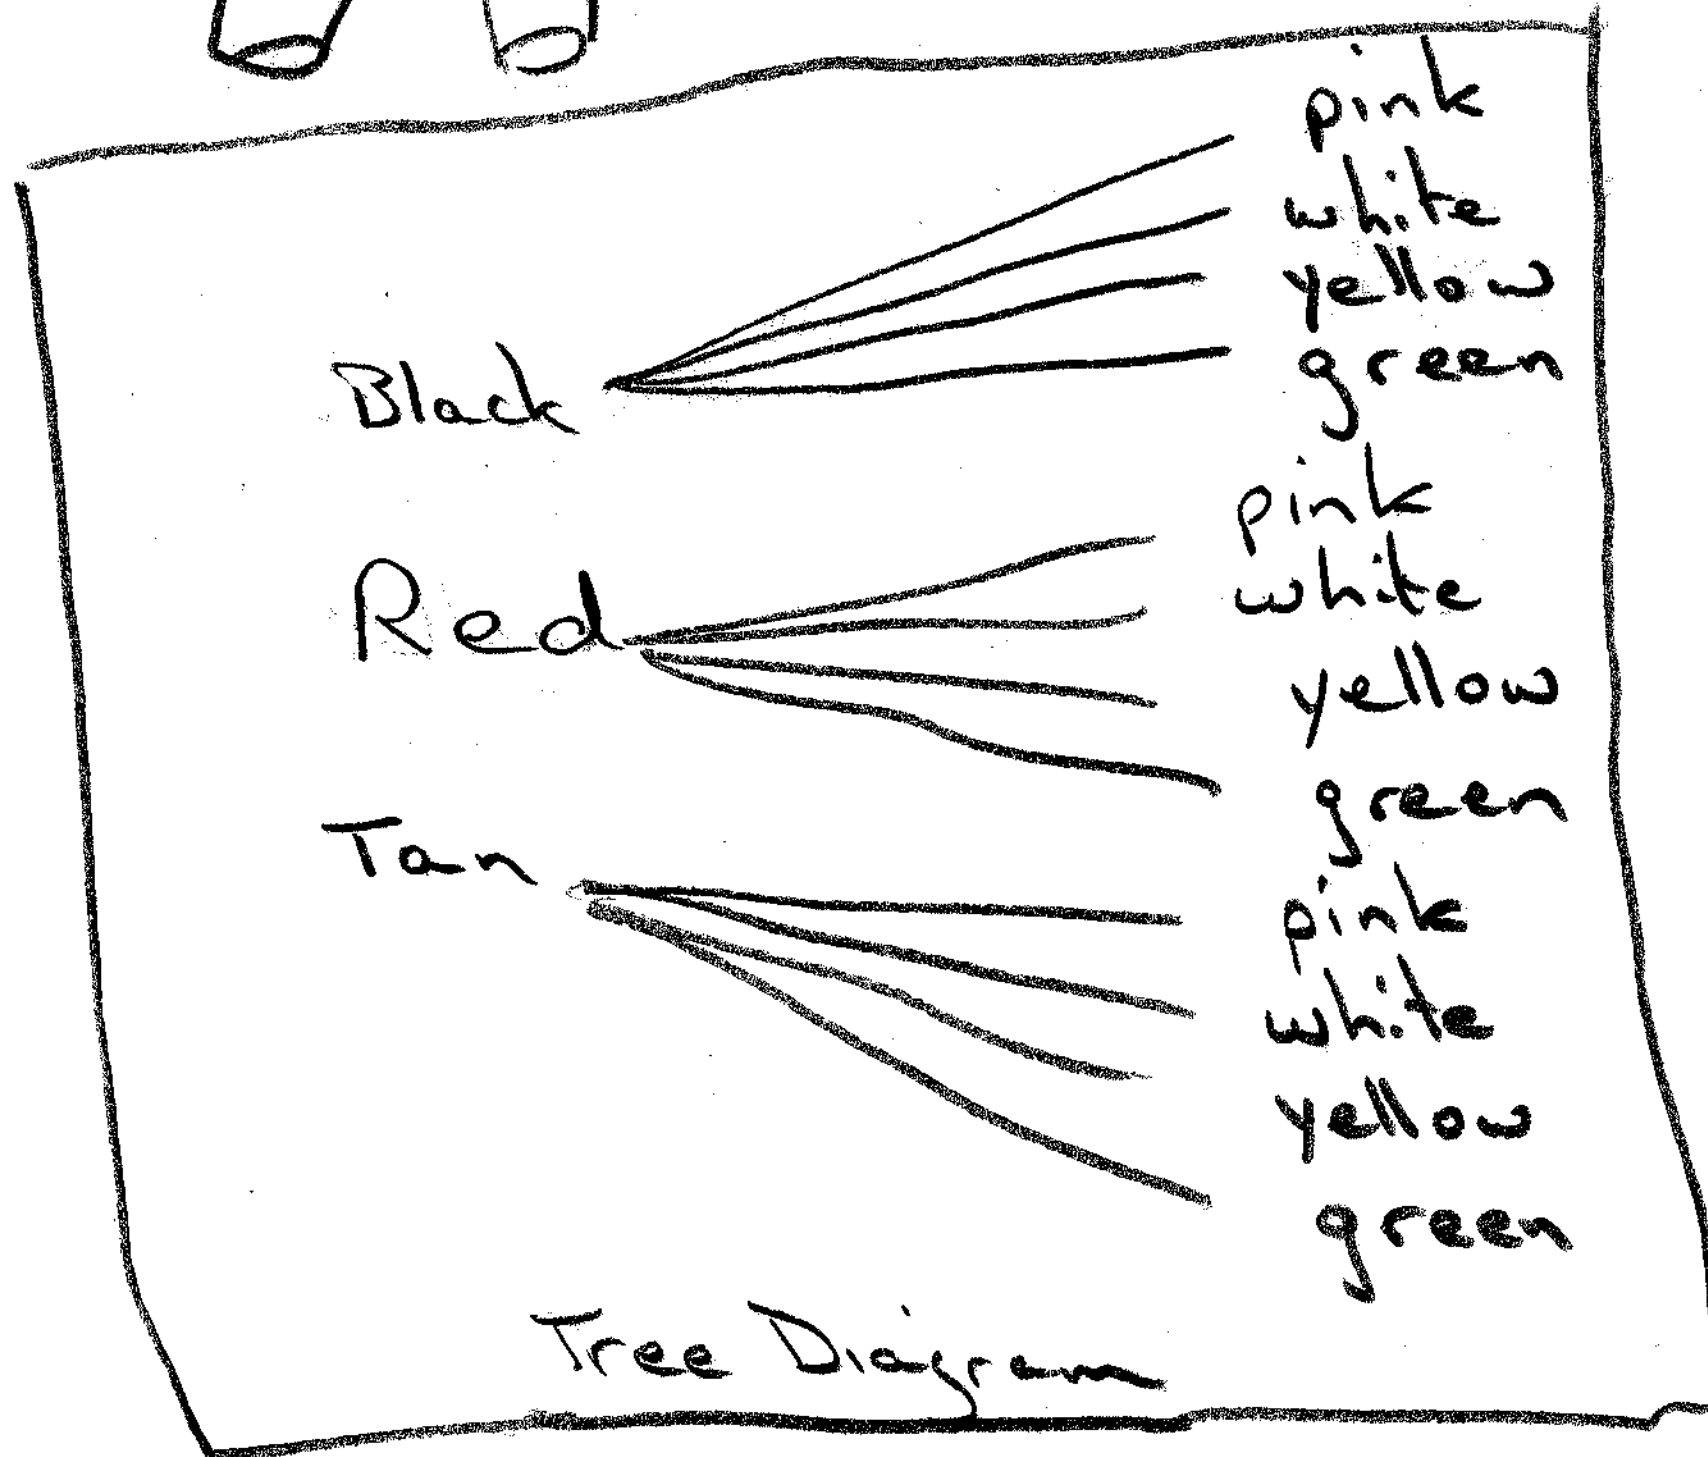 pink
white
yellow
green
Black
pink
white
Red
yellow
green
Tan
pink
white
yellow
green
Tree Diagram